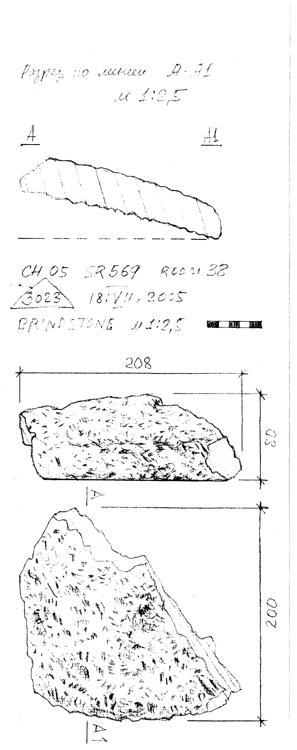 Разрез по линии А-А1
М 1:2,5
А А1
CH 05 SR 569 ROOM 38
3023 18.VII.2005
GRINDSTONE М 1:2,5
208
80
А
200
А1